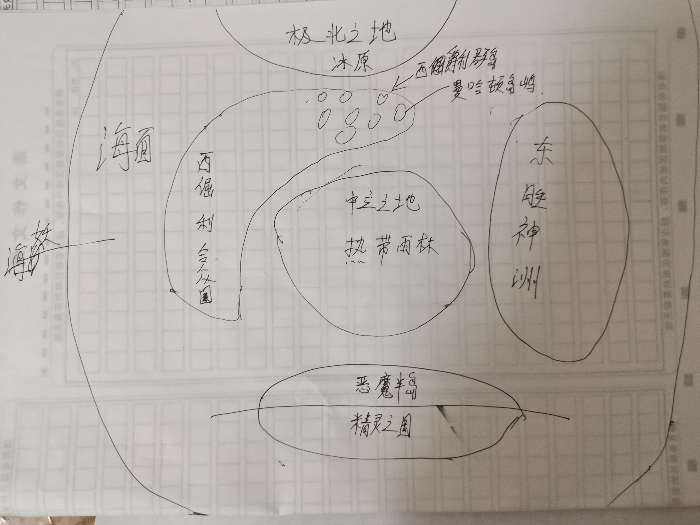 极北之地
冰原
曼哈顿岛屿
海面
西
倔
利
合
众
国
中立之地
热带雨林
东
胜
神
洲
恶魔半岛
精灵之国